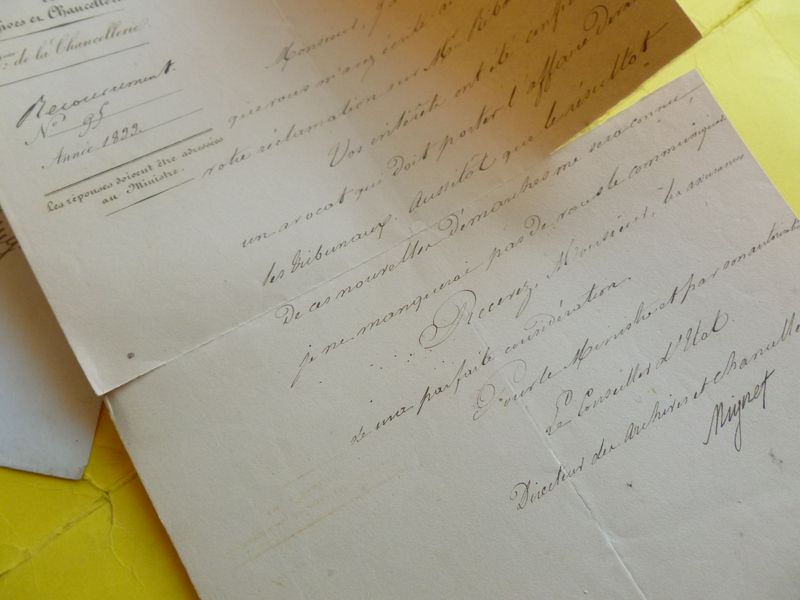 ives et Chancellerie
on de la Chancellerie.
Recouvrement.
No. 95
Année 1833.
Les réponses doivent être adressées
au Ministre.
Monsieur, j'a
que vous m'avez écrite
votre réclamation sur Mr
Vos intérêts ont été
un avocat qui doit porter l'affaire devant
les tribunaux. Aussitôt que le résultat
de ces nouvelles démarches me sera connu,
je ne manquerai pas de vous le communiquer.
Recevez, Monsieur, les assurances
de ma parfaite considération.
Pour le Ministre et par son autorisation
Le Conseiller d'Etat
Directeur des archives et chancelle
Mignet